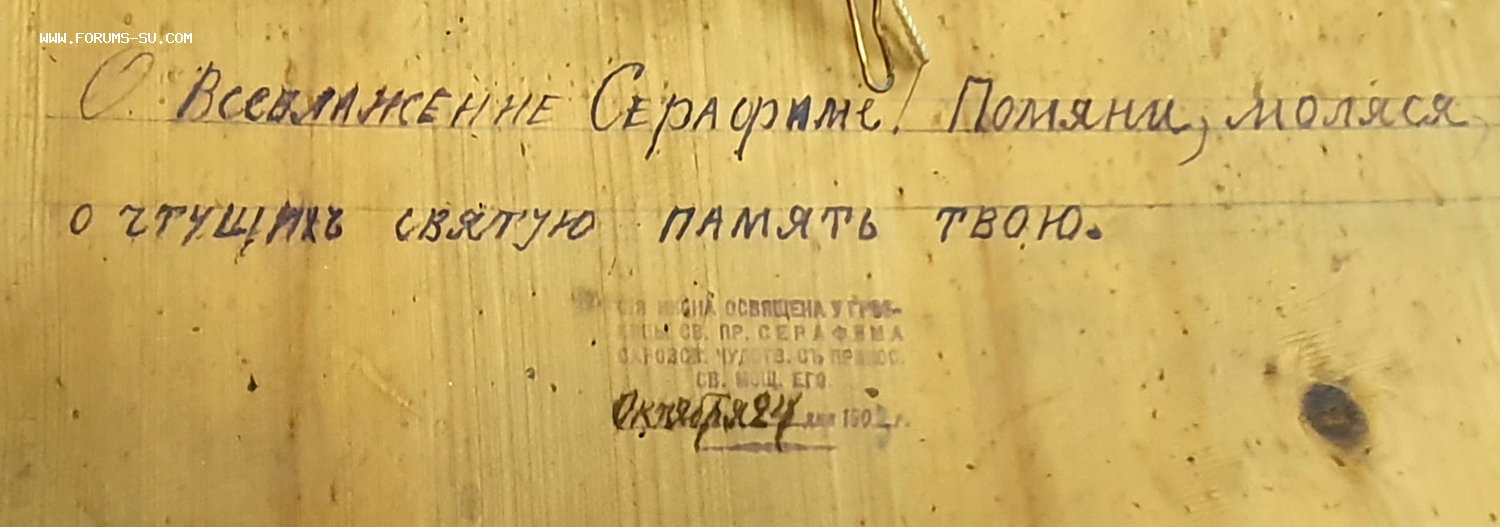 WWW.FORUMS-SU.COM
О Всеблаженне Серафиме! Помяни, моляся,
о чтущихъ святую память твою.
СІЯ ИКОНА ОСВЯЩЕНА У ГРОБ-
НИЦЫ СВ. ПР. СЕРАФИМА
САРОВСК. ЧУДОТВ. СЪ ПРИНОС.
СВ. МОЩ. ЕГО
Октября 24 дня г.